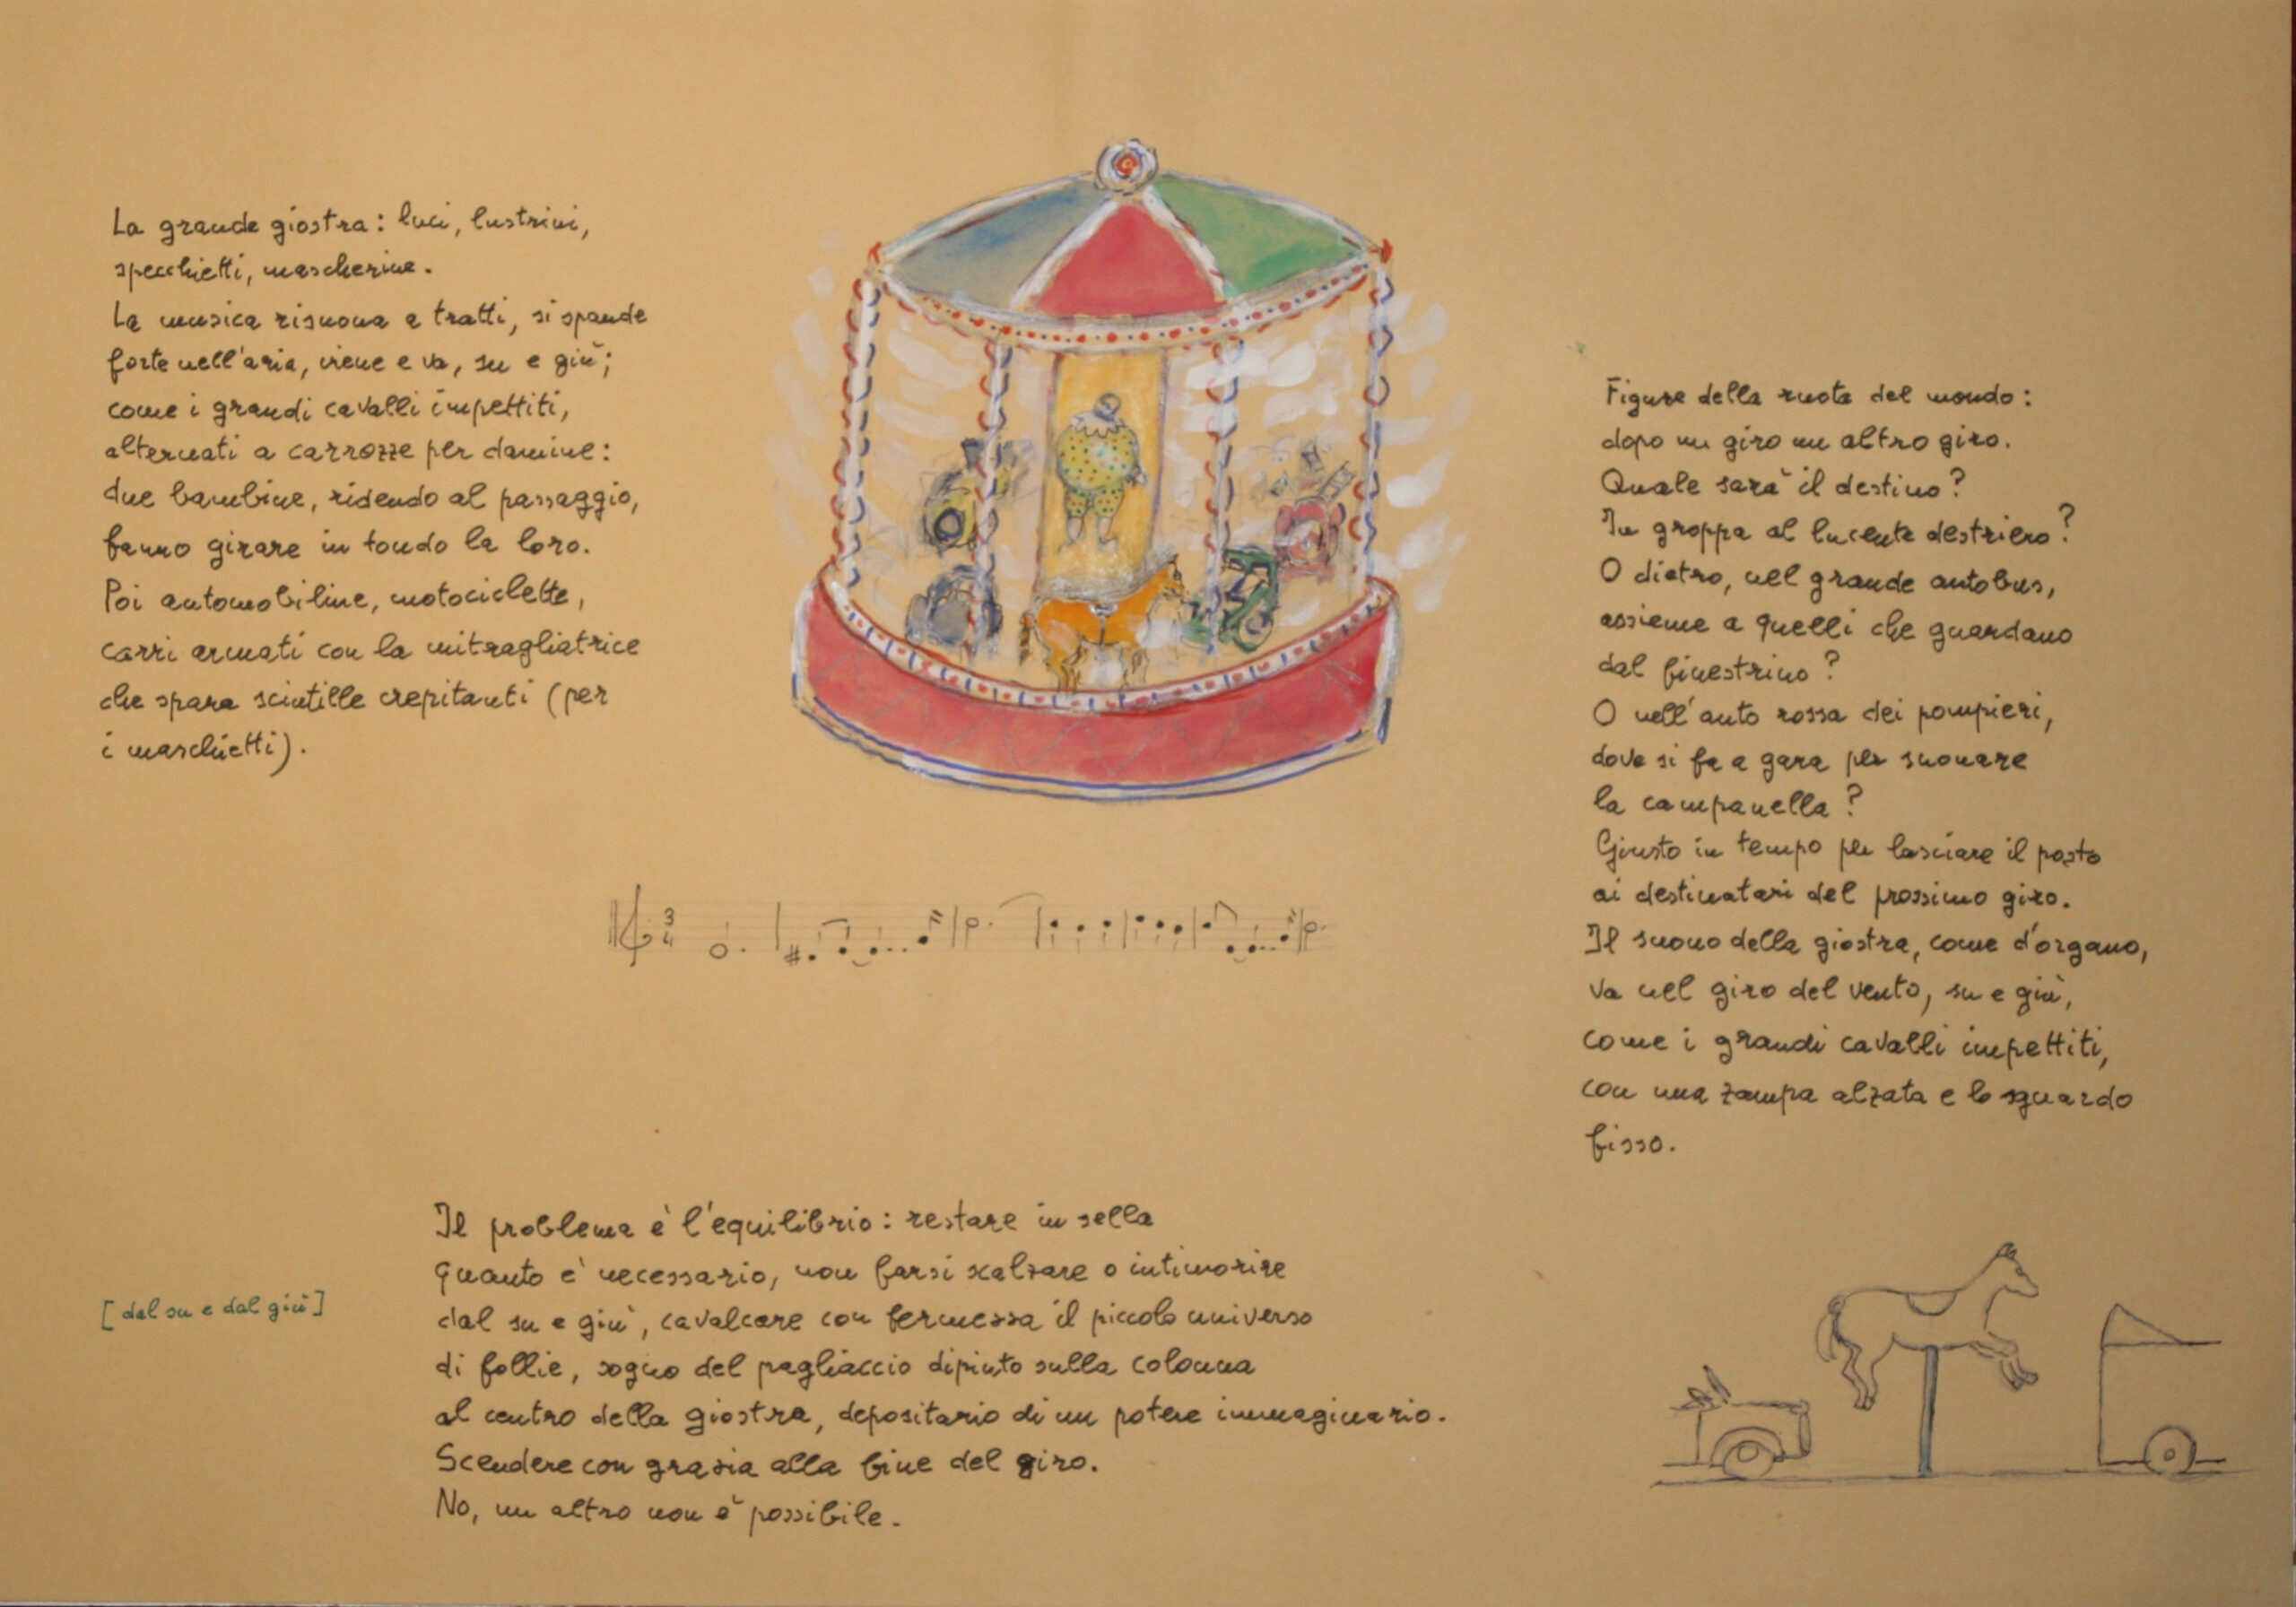 La grande giostra: luci, lustrini,
specchietti, mascherine.
La musica risuona a tratti, si spande
forte nell'aria, viene e va, su e giù;
come i grandi cavalli impettiti,
alternati a carrozze per damine:
due bambine, ridendo al passaggio,
fanno girare in tondo la loro.
Poi automobiline, motociclette,
carri armati con la mitragliatrice
che spara scintille crepitanti (per
i maschietti).
3
4
Figure della ruota del mondo:
dopo un giro un altro giro.
Quale sarà il destino?
In groppa al lucente destriero?
O dietro, nel grande autobus,
assieme a quelli che guardano
dal finestrino?
O nell'auto rossa dei pompieri,
dove si fa a gara per suonare
la campanella?
Giusto in tempo per lasciare il posto
ai destinatari del prossimo giro.
Il suono della giostra, come d'organo,
va nel giro del vento, su e giù,
come i grandi cavalli impettiti,
con una zampa alzata e lo sguardo
fisso.
Il problema è l'equilibrio: restare in sella
quanto è necessario, non farsi scalzare o intimorire
dal su e giù, cavalcare con fermezza il piccolo universo
di follie, sogno del pagliaccio dipinto sulla colonna
al centro della giostra, depositario di un potere immaginario.
Scendere con grazia alla fine del giro.
No, un altro non è possibile.
[dal su e dal giù]